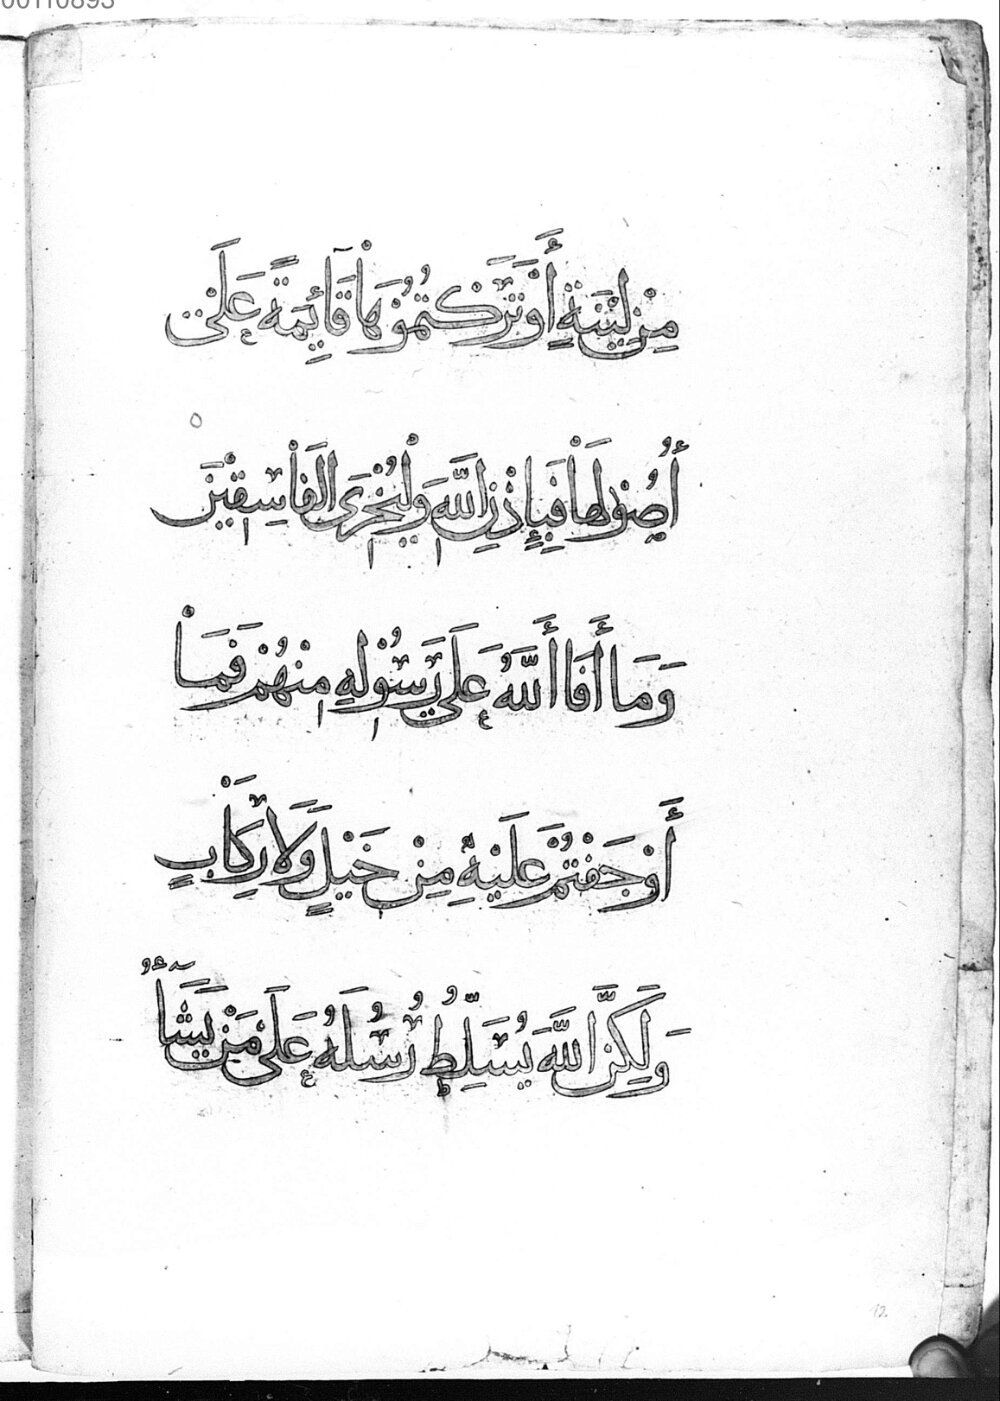 00110893
مِنْ لِيْنَةٍ أَوْ تَرَكْتُمُوْهَا قَآئِمَةً عَلَىٰ
أُصُوْلِهَا فَبِإِذْنِ اللّٰهِ وَلِيُخْزِىَ الْفَاسِقِيْنَ
وَمَا أَفَاأَ اللّٰهُ عَلَىٰ رَسُوْلِهِ مِنْهُمْ فَمَا
أَوْجَفْتُمْ عَلَيْهِ مِنْ خَيْلٍ وَلَا رِكَابٍ
وَلَكِنَّ اللّٰهَ يُسَلِّطُ رُسُلَهُ عَلَىٰ مَنْ يَشَآءُ
12